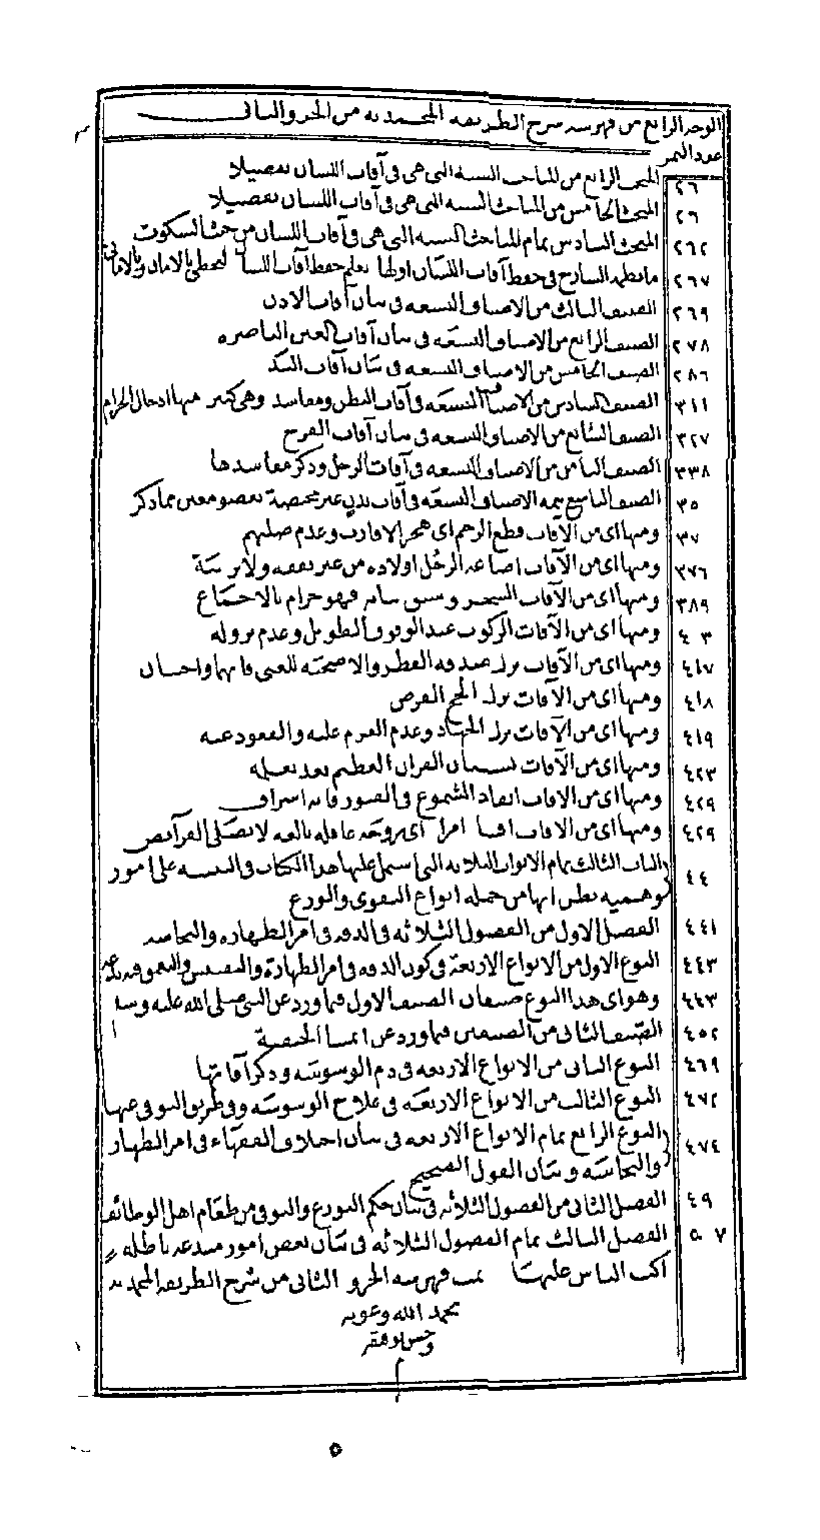 الوجه الرابع من فهرسة شرح الطريقة المحمدية من الجزء الثاني
عدد النمر
٢٦ المبحث الرابع من المباحث الستة التي هي في آفات اللسان تفصيلا
٢٦ المبحث الخامس من المباحث الستة التي هي في آفات اللسان تفصيلا
٢٦٢ المبحث السادس تمام المباحث الستة التي هي في آفات اللسان من حيث السكوت
٢٦٧ ما نظمه الشارح في حفظ آفات اللسان اولها تعلم حفظ آفات اللسان لتحظى بالامان وبالاماني
٢٦٩ الصنف الثالث من الاصناف التسعة في بيان آفات الاذن
٢٧٨ الصنف الرابع من الاصناف التسعة في بيان آفات العين الباصره
٢٨٦ الصنف الخامس من الاصناف التسعة في بيان آفات اليد
٣١١ الصنف السادس من الاصناف التسعة في آفات البطن ومفاسد وهي كثير منها ادخال الحرام
٣٢٧ الصنف السابع من الاصناف التسعة في بيان آفات الفرج
٣٣٨ الصنف الثامن من الاصناف التسعة في آفات الرجل وذكر مفاسدها
٣٥ الصنف التاسع تتمة الاصناف التسعة في آفات بدن غير مختصة بعضو معين مما ذكر
٣٧ ومنها اى من الآفات قطع الرحم اى هجر الاقارب وعدم صلتهم
٣٧٦ ومنها اى من الآفات اضاعة الرجل اولاده من غير نفقه ولا تربية
٣٨٩ ومنها اى من الآفات السحر وسبق بيانه فهو حرام بالاجماع
٤٣ ومنها اى من الآفات الركوب عند الوقوف الطويل وعدم نزوله
٤١٧ ومنها اى من الآفات ترك صدقه الفطر والاضحية للغني فانهما واجبان
٤١٨ ومنها اى من الآفات ترك الحج الفرض
٤١٩ ومنها اى من الآفات ترك الجهاد وعدم العزم عليه والقعود عنه
٤٢٣ ومنها اى من الآفات نسيان القران العظيم بعد تعلمه
٤٢٩ ومنها اى من الآفات ايقاد الشموع في القبور فانه اسراف
٤٢٩ ومنها اى من الآفات اقتنا امراة اى زوجة عاقله بالغه لا تصلى الفرآيض
٤٤ الباب الثالث تمام الابواب الثلاثه التي اشتمل عليها هذا الكتاب في التنبيه على امور
وهمية يظن انها من جملة انواع التقوى والورع
٤٤١ الفصل الاول من الفصول الثلاثه في الدقه في امر الطهاره والنجاسه
٤٤٣ النوع الاول من الانواع الاربعة في كون الدقه في امر الطهارة والتفتيش والتعمق فيه بدعه
٤٤٣ وهو اى هذا النوع صنفان الصنف الاول فيما ورد عن النبي صلى الله عليه وسلم
٤٥٢ الصنف الثاني من الصنفين فيما ورد عن ائمتنا الحنفية
٤٦٩ النوع الثاني من الانواع الاربعه في ذم الوسوسه وذكر آفاتها
٤٧٢ النوع الثالث من الانواع الاربعه في علاج الوسوسه وفي طريق التوقي عنها
٤٧٤ النوع الرابع تمام الانواع الاربعه في بيان اختلاف الفقهاء في امر الطهار
والنجاسه وبيان القول الصحيح
٤٩ الفصل الثاني من الفصول الثلاثه في بيان حكم التورع والتوقي من طعام اهل الوظائف
٥٧ الفصل الثالث تمام الفصول الثلاثه في بيان بعض امور مبتدعه باطله
اكب الناس عليها تمت فهرسه الجزو الثاني من شرح الطريقه المحمديه
بحمد الله وعونه
وحسن توفيقه
٥